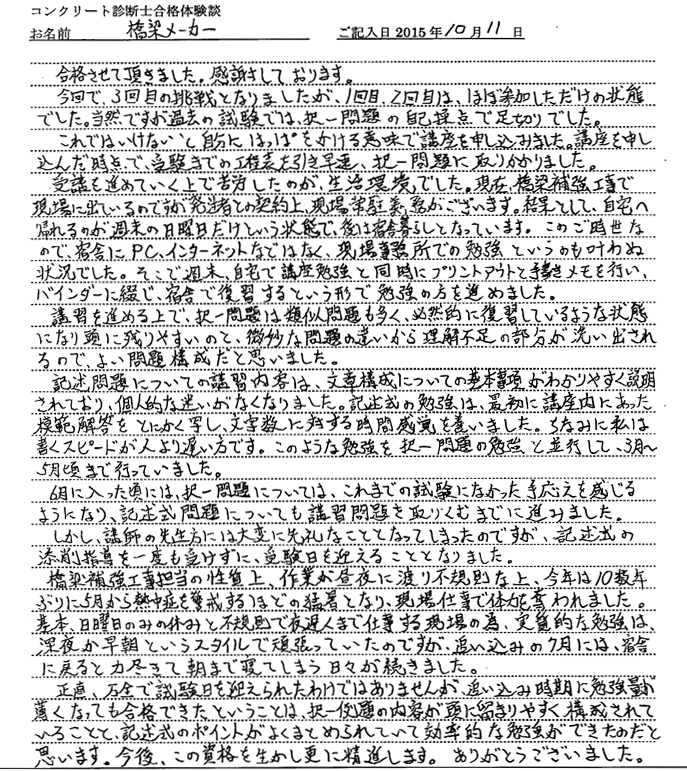 コンクリート診断士合格体験談
お名前 橋梁メーカー ご記入日 2015年10月11日
合格させて頂きました。感謝しております。
今回で、3回目の挑戦となりましたが、1回目、2回目は、ほぼ参加しただけの状態
でした。当然ですが過去の試験では、択一問題の自己採点で足切りでした。
これではいけないと自分に"はっぱ"をかける意味で講座を申し込みました。講座を申し
込んだ時点で、受験までの工程表を引き早速、択一問題に取りかかりました。
受講を進めていく上で苦労したのが、生活環境でした。現在、橋梁補強工事で
現場に出ているのですが発注者との契約上、現場常駐義務がございます。結果として、自宅へ
帰れるのが週末の日曜日だけという状態で、後は宿舎暮らしとなっています。このご時世な
ので、宿舎にPC、インターネットなどはなく、現場事務所での勉強というのも叶わぬ
状況でした。そこで週末、自宅で講座勉強と同時にプリントアウトと手書きメモを行い、
バインダーに綴じ、宿舎で復習するという形で勉強の方を進めました。
講習を進める上で、択一問題は類似問題も多く、必然的に復習しているような状態
になり頭に残りやすいのと、微妙な問題の違いから理解不足の部分が洗い出され
るので、よい問題構成だと思いました。
記述問題についての講習内容は、文章構成についての基本事項がわかりやすく説明
されており、個人的な迷いがなくなりました。記述式の勉強は、最初に講座内にあった
模範解答をとにかく写し、文字数に対する時間感覚を養いました。ちなみに私は
書くスピードが人より遅い方です。このような勉強を択一問題の勉強と並行して、3月〜
5月頃まで行っていました。
6月に入った頃には、択一問題については、これまでの試験になかった手応えを感じる
ようになり、記述式問題についても講習問題を取りくむまでに進みました。
しかし、講師の先生方には大変に失礼なこととなってしまったのですが、記述式の
添削指導を一度も受けずに、受験日を迎えることとなりました。
橋梁補強工事担当の性質上、作業が昼夜に渡り不規則な上、今年は10数年
ぶりに5月から熱中症を警戒するほどの猛暑となり、現場仕事で体力を奪われました。
基本、日曜日のみの休みと不規則で夜遅くまで仕事する現場の為、実質的な勉強は、
深夜か早朝というスタイルで頑張っていたのですが、追い込みの7月には、宿舎
に戻ると力尽きて朝まで寝てしまう日々が続きました。
正直、万全で試験日を迎えられたわけではありませんが、追い込み時期に勉強量が
薄くなっても合格できたということは、択一例題の内容が頭に留まりやすく構成されて
いることと、記述式のポイントがよくまとめられていて効率的な勉強ができたのだと
思います。今後、この資格を生かし更に精進します。ありがとうございました。